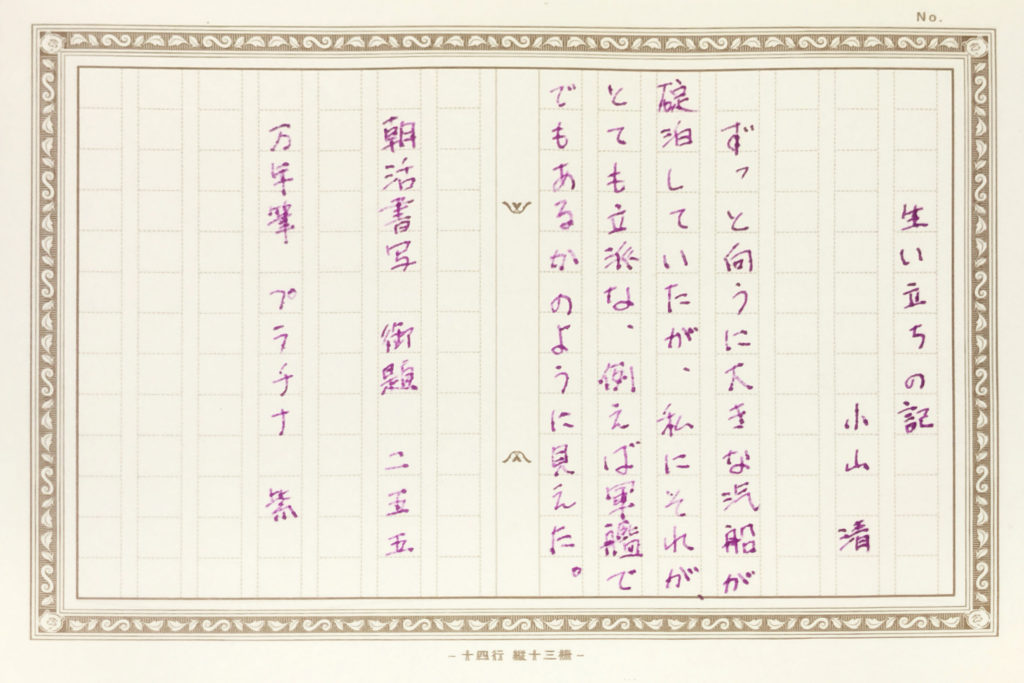 No.
生い立ちの記
小山 清
ずっと向うに大きな汽船が
碇泊していたが、私にそれが、
とても立派な、例えば軍艦で
でもあるかのように見えた。
朝活書写 御題 二五五
万年筆 プラチナ 紫
-十四行 縦十三機-